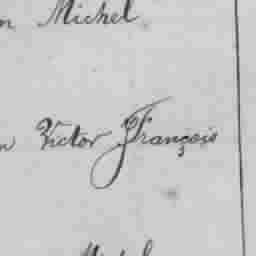 n Michel
n Victor François